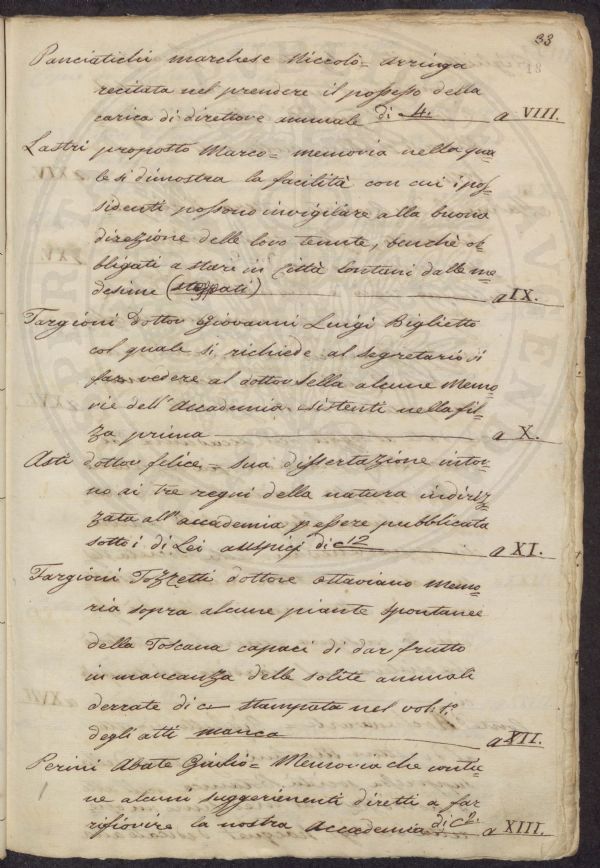 33
18
Panciatichi marchese Niccolò = Arringa
recitata nel prendere il possesso della
carica di direttore annuale di 4. a VIII.
Lastri proposto Marco = memoria nella qua=
le si dimostra la facilità con cui i pos=
sidenti possono invigilare alla buona
direzione delle loro tenute, benchè ob=
bligati a stare in Città lontani dalle me=
desime (stampati) a IX.
Targioni Dottor Giovanni Luigi Biglietto
col quale si richiede al segretario di
far vedere al dottor Sella alcune Memo=
rie dell'Accademia sistenti nella fil=
za prima a X.
Asti dottor felice = sua dissertazione intor=
no ai tre regni della natura indiriz=
zata all'accademia p essere pubblicata
sotto i di Lei auspicj di c 12 a XI.
Targioni Tozzetti dottore Ottaviano Memo=
ria sopra alcune piante spontanee
della Toscana capaci di dar frutto
in mancanza delle solite annuali
derrate di c= stampata nel vol. 1°
degli atti manca a XII.
Perini Abate Giulio = Memoria che contie=
ne alcuni suggerimenti diretti a far
rifiorire la nostra Accademia di c 2. a XIII.